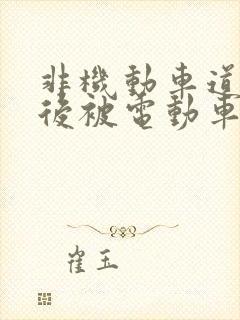 非機動車道
後被電動車
崔玉